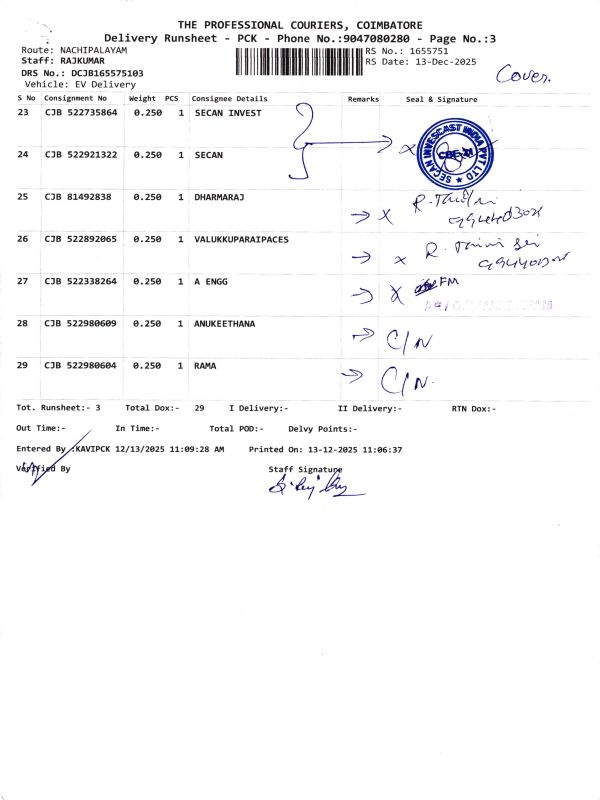 THE PROFESSIONAL COURIERS, COIMBATORE
Delivery Runsheet - PCK - Phone No.:9047080280 - Page No.:3
Route: NACHIPALAYAM
RS No.: 1655751
Staff: RAJKUMAR
RS Date: 13-Dec-2025
DRS No.: DCJB165575103
Vehicle: EV Delivery
Cover.
S No Consignment No Weight PCS Consignee Details Remarks Seal & Signature
23 CJB 522735864 0.250 1 SECAN INVEST
24 CJB 522921322 0.250 1 SECAN
SECAN INVESCAST INDIA PVT LTD
25 CJB 81492838 0.250 1 DHARMARAJ
26 CJB 522892065 0.250 1 VALUKKUPARAIPACES
27 CJB 522338264 0.250 1 A ENGG FM
28 CJB 522980609 0.250 1 ANUKEETHANA C/N
29 CJB 522980604 0.250 1 RAMA C/N.
Tot. Runsheet:- 3 Total Dox:- 29 I Delivery:- II Delivery:- RTN Dox:-
Out Time:- In Time:- Total POD:- Delvy Points:-
Entered By :KAVIPCK 12/13/2025 11:09:28 AM Printed On: 13-12-2025 11:06:37
Verified By Staff Signature